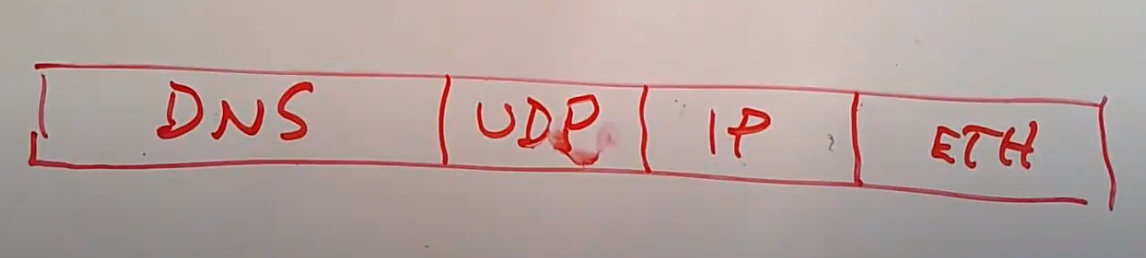 DNS UDP IP ETH